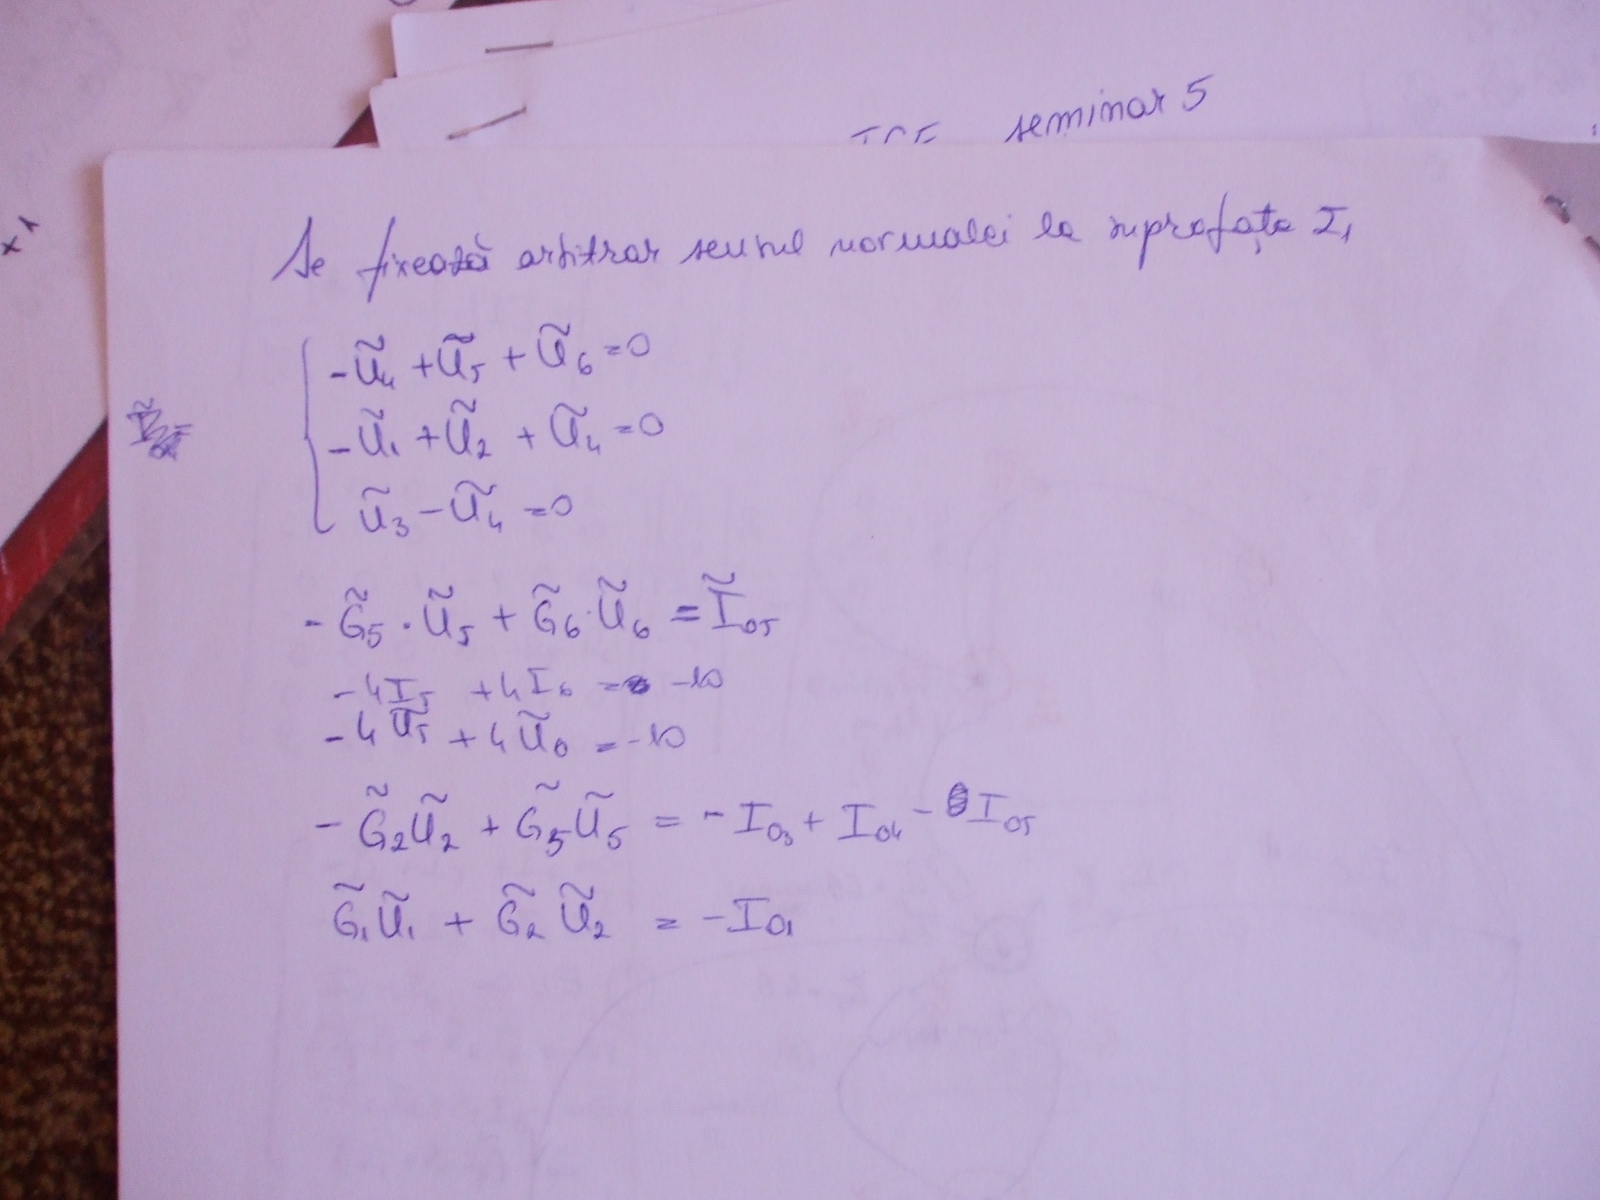 seminar 5
x 1
Se fixează arbitrar sensul normalei la suprafața Σ₁
-Ũ₄ + Ũ₅ + Ũ₆ = 0
-Ũ₁ + Ũ₂ + Ũ₄ = 0
Ũ₃ - Ũ₄ = 0
- G̃₅ · Ũ₅ + G̃₆ · Ũ₆ = Ĩ₀₅
-4I₅ +4I₆ = -10
-4Ũ₅ + 4Ũ₆ = -10
- G̃₂Ũ₂ + G̃₅Ũ₅ = - I₀₃ + I₀₄ - I₀₅
G̃₁Ũ₁ + G̃₂Ũ₂ = -I₀₁